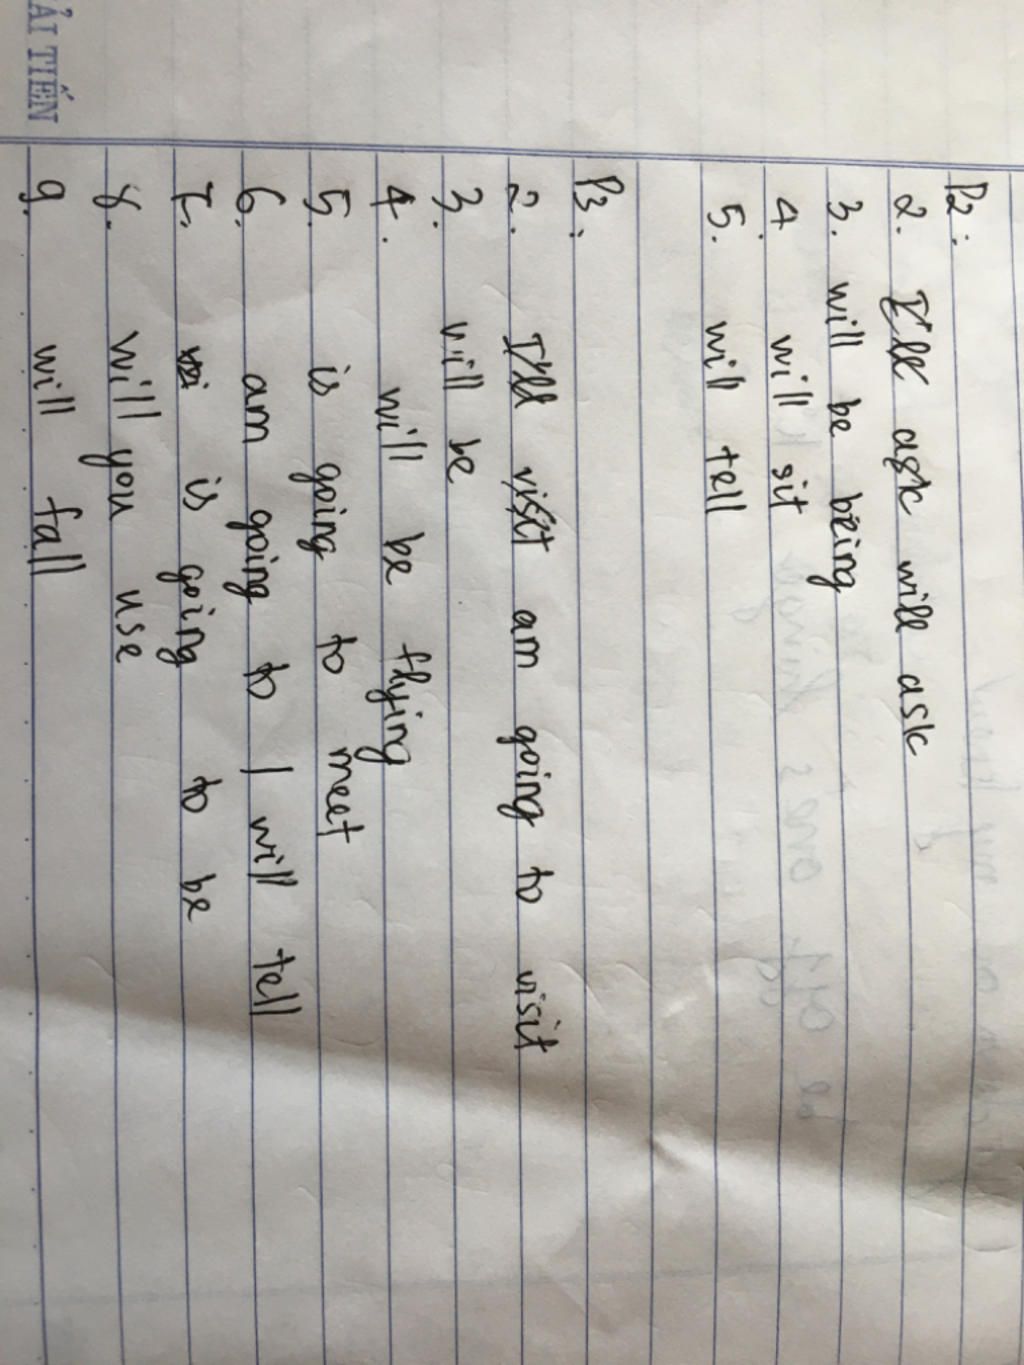 P2:
2. I'll ask will ask
3. will be being
4. will sit
5. will tell
P3:
2. I'll visit am going to visit
3. will be
4. will be flying
5. is going to meet
6. am going to I will tell
7. is going to be
8. will you use
9. will fall
ẢI TIẾN